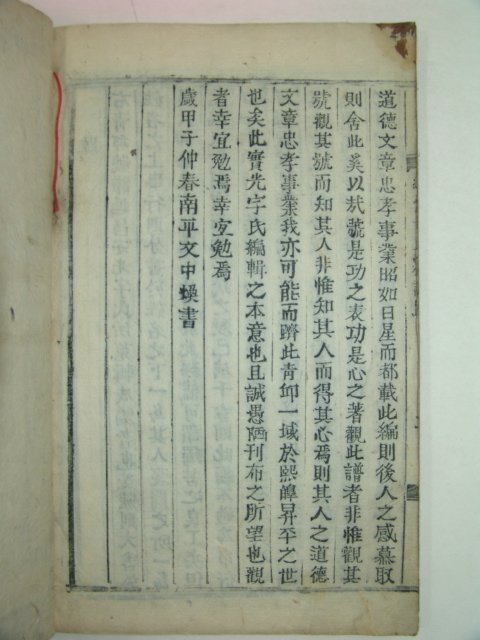 道德文章忠孝事業昭如日星而都載此編則後人之感慕取
則舍此奚以哉號是功之表功是心之著觀此譜者非惟觀其
號觀其號而知其人非惟知其人而得其心焉則其人之道德
文章忠孝事業我亦可能而躋此靑邱一域於熙皥昇平之世
也矣此實先字氏編輯之本意也且誠愚陋刊布之所望也觀
者幸宜勉焉幸宜勉焉
歲甲子仲春南平文中燮書